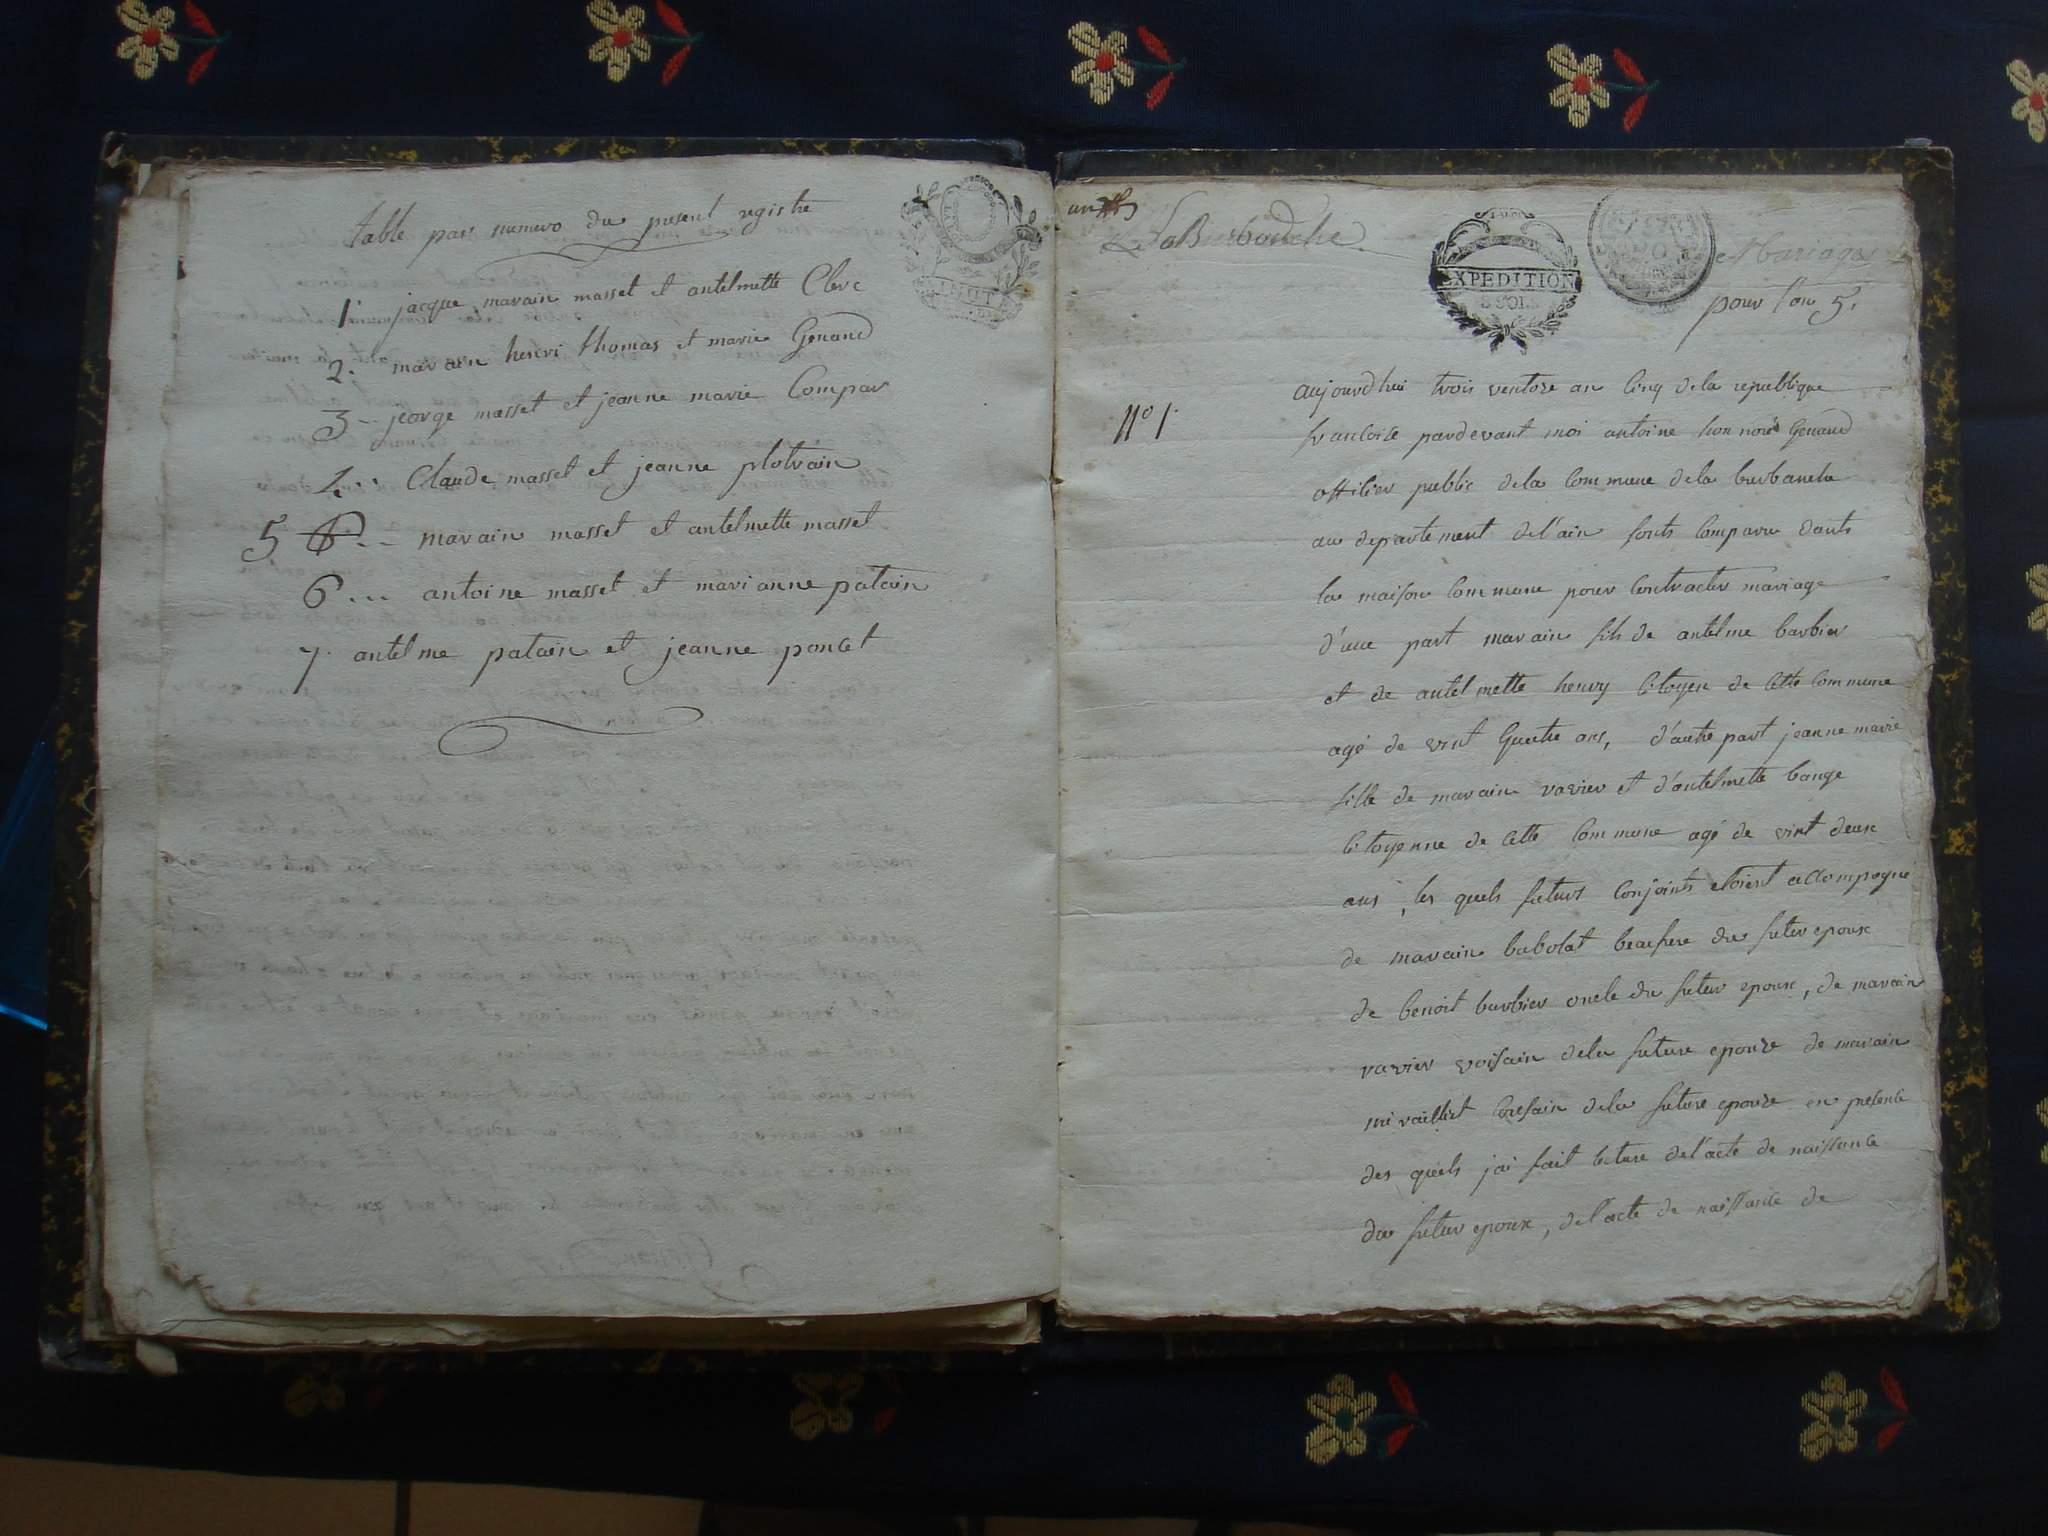 table par numero du present registre
1. jacque marain masset et antelmette Clerc
2. marain henri thomas et marie Genand
3 -- jeorge masset et jeanne marie Compar
4... Claude masset et jeanne plotrain
5 6 -- marain masset et antelmette masset
6... antoine masset et marianne patain
7. antelme patain et jeanne poncet
MINUTE
an
LaBurbanche
EXPEDITION
8 SOLS
Mariages
pour l'an 5.
N° 1.
aujourdhui trois ventose an Cinq de la republique
francoise pardevant moi antoine honnoré Genand
officier public dela Commune dela burbanche
au departement del'ain sonts Comparu dants
la maison Commune pour Contracter mariage
d'une part marain fils de antelme barbier
et de antelmette henry Citoyen de Cette Commune
agé de vint quatre ans, d'autre part jeanne marie
fille de marain ravier et d'antelmette bange
Citoyenne de Cette Commune agé de vint deux
ans, les quels futurs Conjoints etoient accompagne
de marain babolat beaufrere du futur epoux
de benoit barbier oncle du futur epoux, de marain
ravier voisain dela future epouze de marain
miraillet Cousain dela future epouze en presence
des quels jai fait lecture del'acte de naissance
du futur epoux, del'acte de naissance de